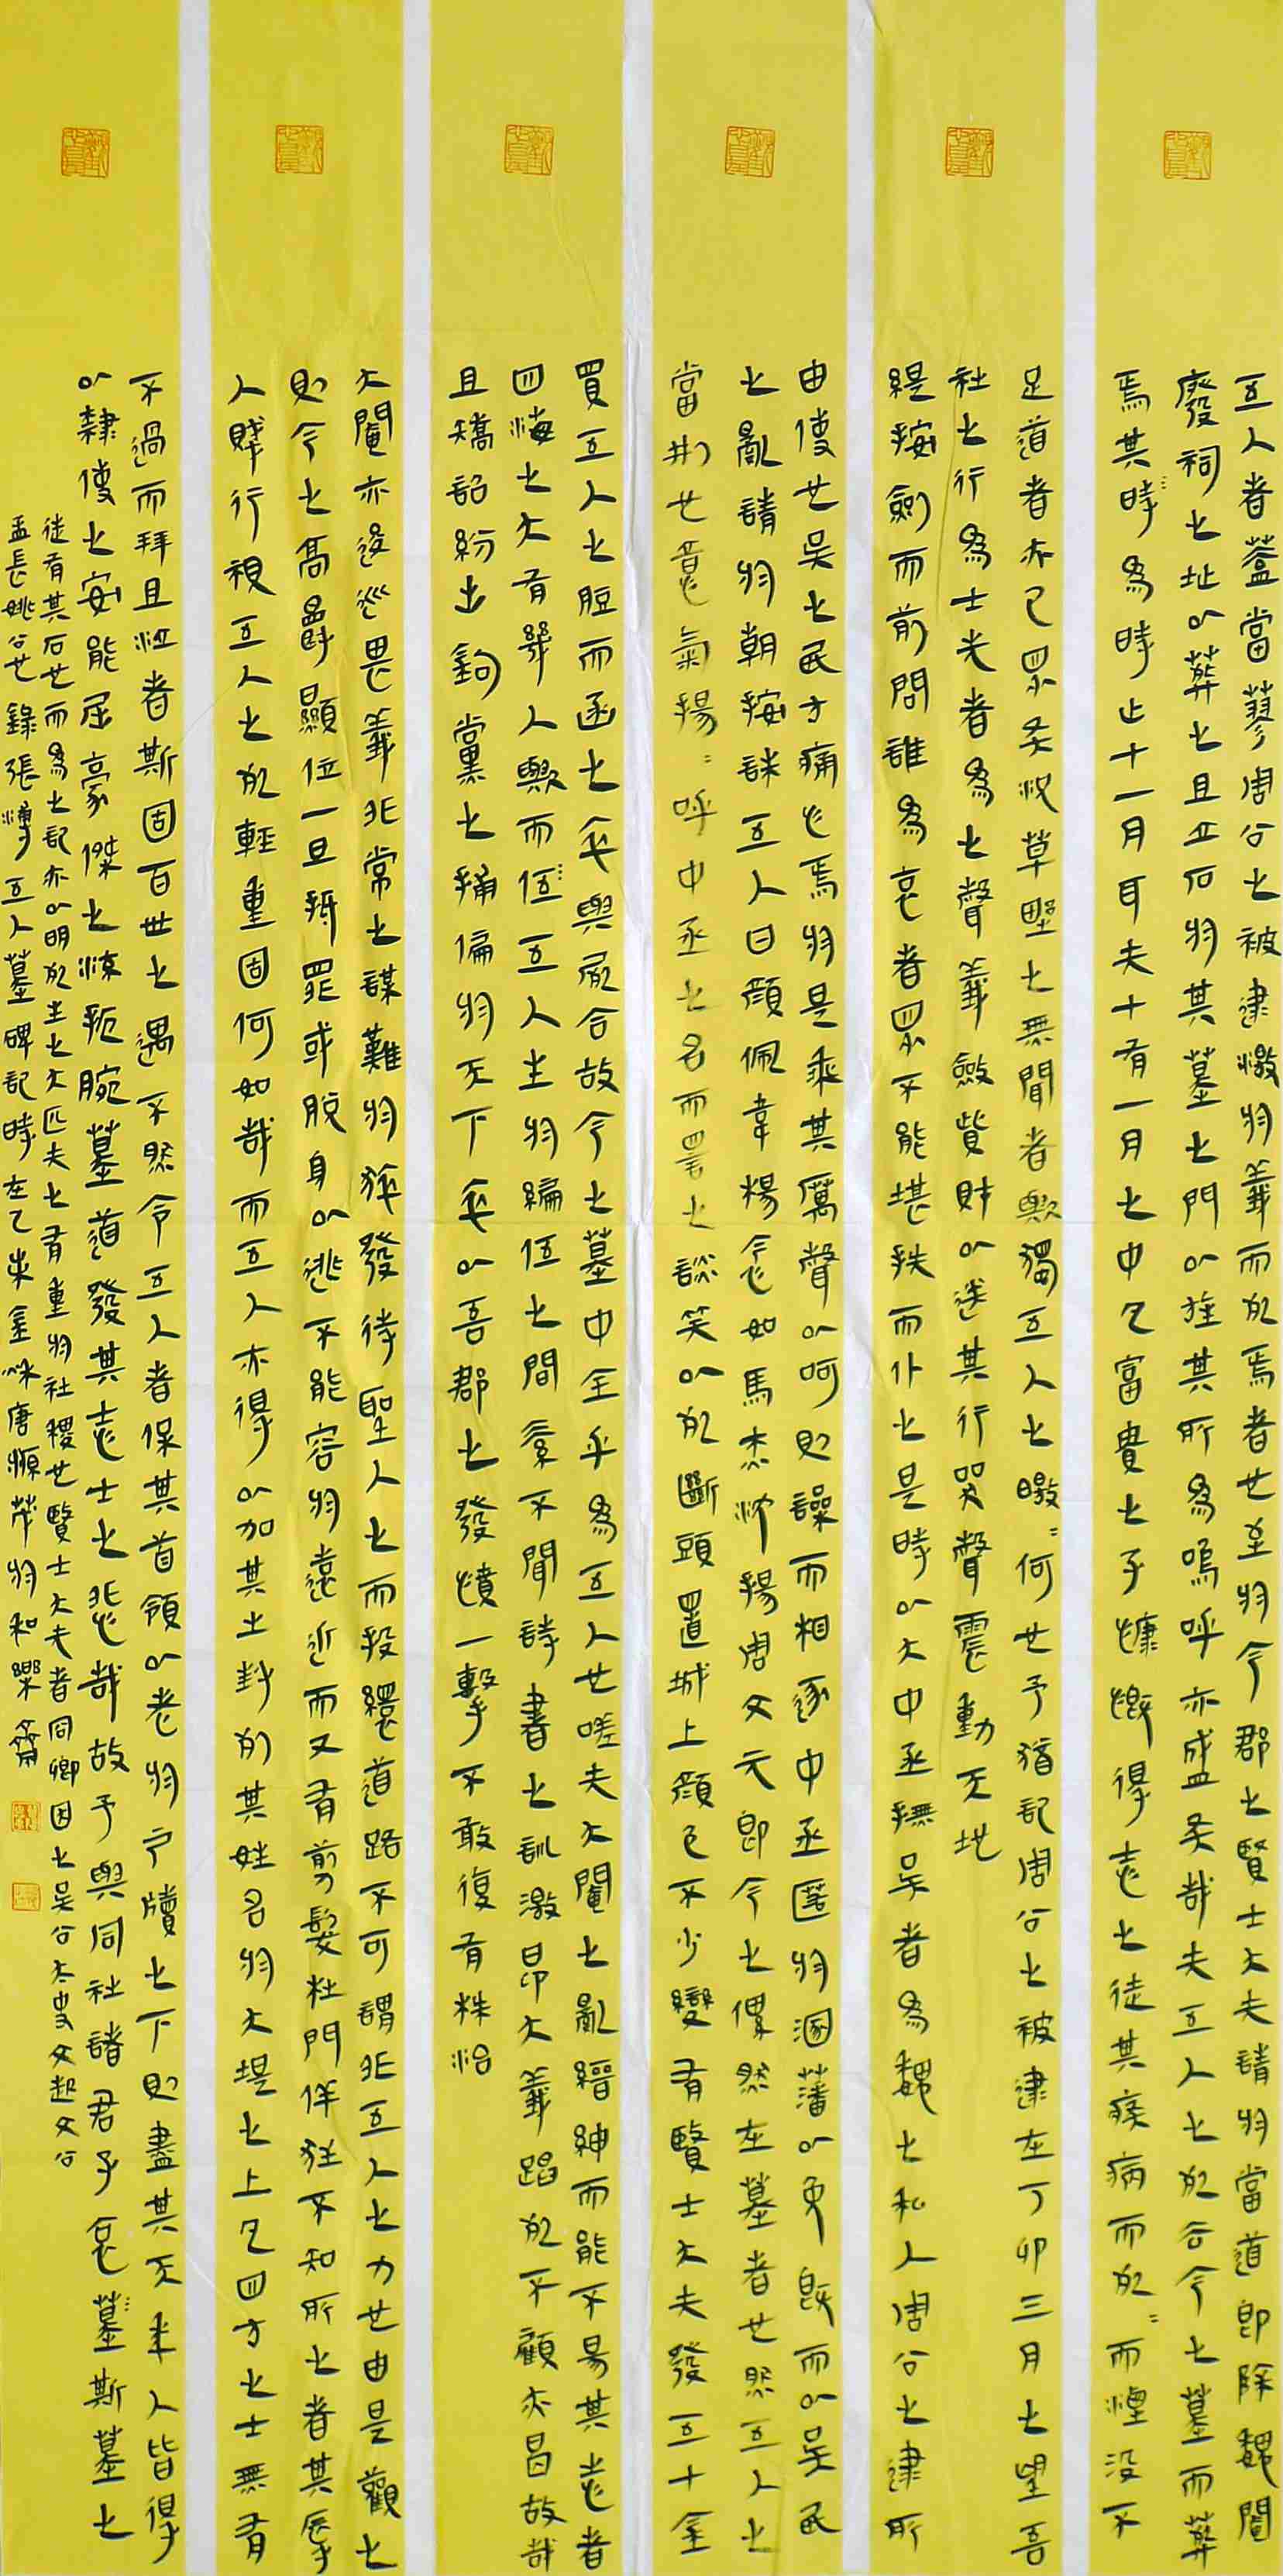 五人者蓋當蓼周公之被逮激於義而死焉者也至於今郡之賢士大夫請於當道即除魏閹
廢祠之址以葬之且立石於其墓之門以旌其所為嗚呼亦盛矣哉夫五人之死去今之墓而葬
焉其時為時止十一月耳夫十有一月之中凡富貴之子慷慨得志之徒其疾病而死=而湮没不
足道者亦已眾矣況草野之無聞者歟獨五人之皦=何也予猶記周公之被逮在丁卯三月之望吾
社之行為士先者為之聲義斂貲財以送其行哭聲震動天地
緹按劍而前問誰為哀者眾不能堪抶而仆之是時以大中丞撫吳者為魏之私人周公之逮所
由使也吳之民方痛心焉於是乘其厲聲以呵則譟而相逐中丞匿於溷藩以免既而以吳民
之亂請於朝按誅五人曰顏佩韋楊念如馬杰沈揚周文元即今之傫然在墓者也然五人之
當刑也意氣揚=呼中丞之名而詈之談笑以死斷頭置城上顏色不少變有賢士大夫發五十金
買五人之脰而函之卒與屍合故今之墓中全乎為五人也嗟夫大閹之亂縉紳而能不易其志者
四海之大有幾人歟而五人生於編伍之間素不聞詩書之訓激昂大義蹈死不顧亦曷故哉
且矯詔紛出鉤黨之捕徧於天下卒以吾郡之發憤一擊不敢復有株治
大閹亦逡巡畏義非常之謀難於猝發待聖人之而投繯道路不可謂非五人之力也由是觀之
則今之高爵顯位一旦抵罪或脫身以逃不能容於遠近而又有剪髮杜門佯狂不知所之者其辱
人賤行視五人之死輕重固何如哉而五人亦得以加其土封列其姓名於大堤之上凡四方之士無有
不過而拜且泣者斯固百世之遇不然令五人者保其首領以老於户牖之下則盡其天年人皆得
以隸使之安能屈豪傑之流扼腕墓道發其志士之悲哉故予與同社諸君子哀墓斯墓之
徒有其石也而為之記亦以明死生之大匹夫之有重於社稷也賢士大夫者冏卿因之吳公太史文起文公
孟長姚公也錄張溥五人墓碑記時在乙未金秋唐順華於和樂齋